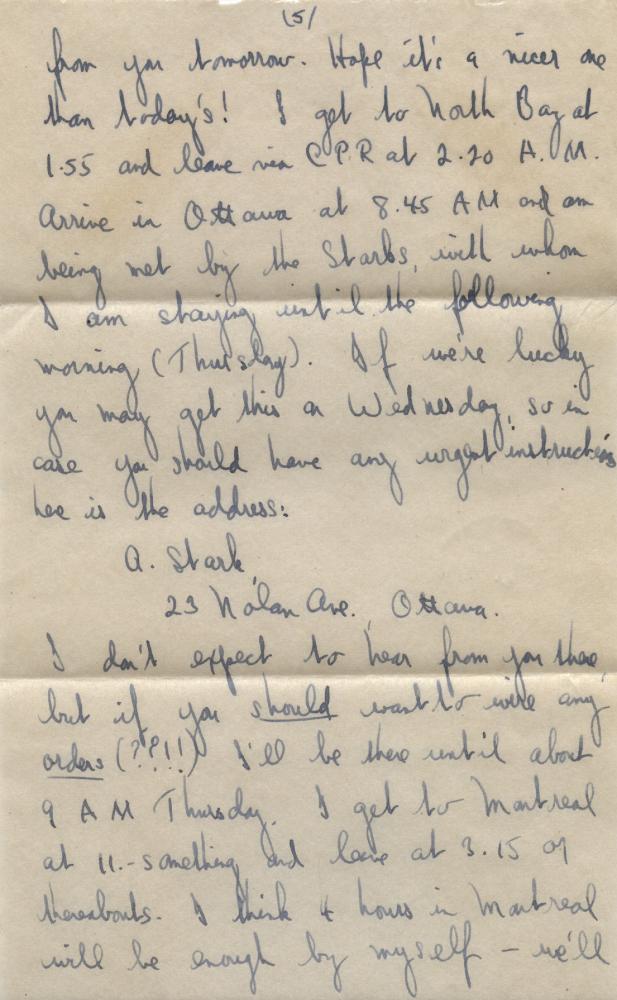 (5/
from you tomorrow. Hope it's a nicer one
than today's! I get to North Bay at
1.55 and leave via C.P.R at 2.20 A.M.
Arrive in Ottawa at 8.45 AM and am
being met by the Starks, with whom
I am staying until the following
morning (Thursday). If we're lucky
you may get this on Wednesday, so in
case you should have any urgent instructions
here is the address:
A. Stark,
23 Nolan Ave., Ottawa.
I don't expect to hear from you there,
but if you should want to wire any
orders (??!!) I'll be there until about
9 AM Thursday. I get to Montreal
at 11.-something and leave at 3.15 or
thereabouts. I think 4 hours in Montreal
will be enough by myself - we'll